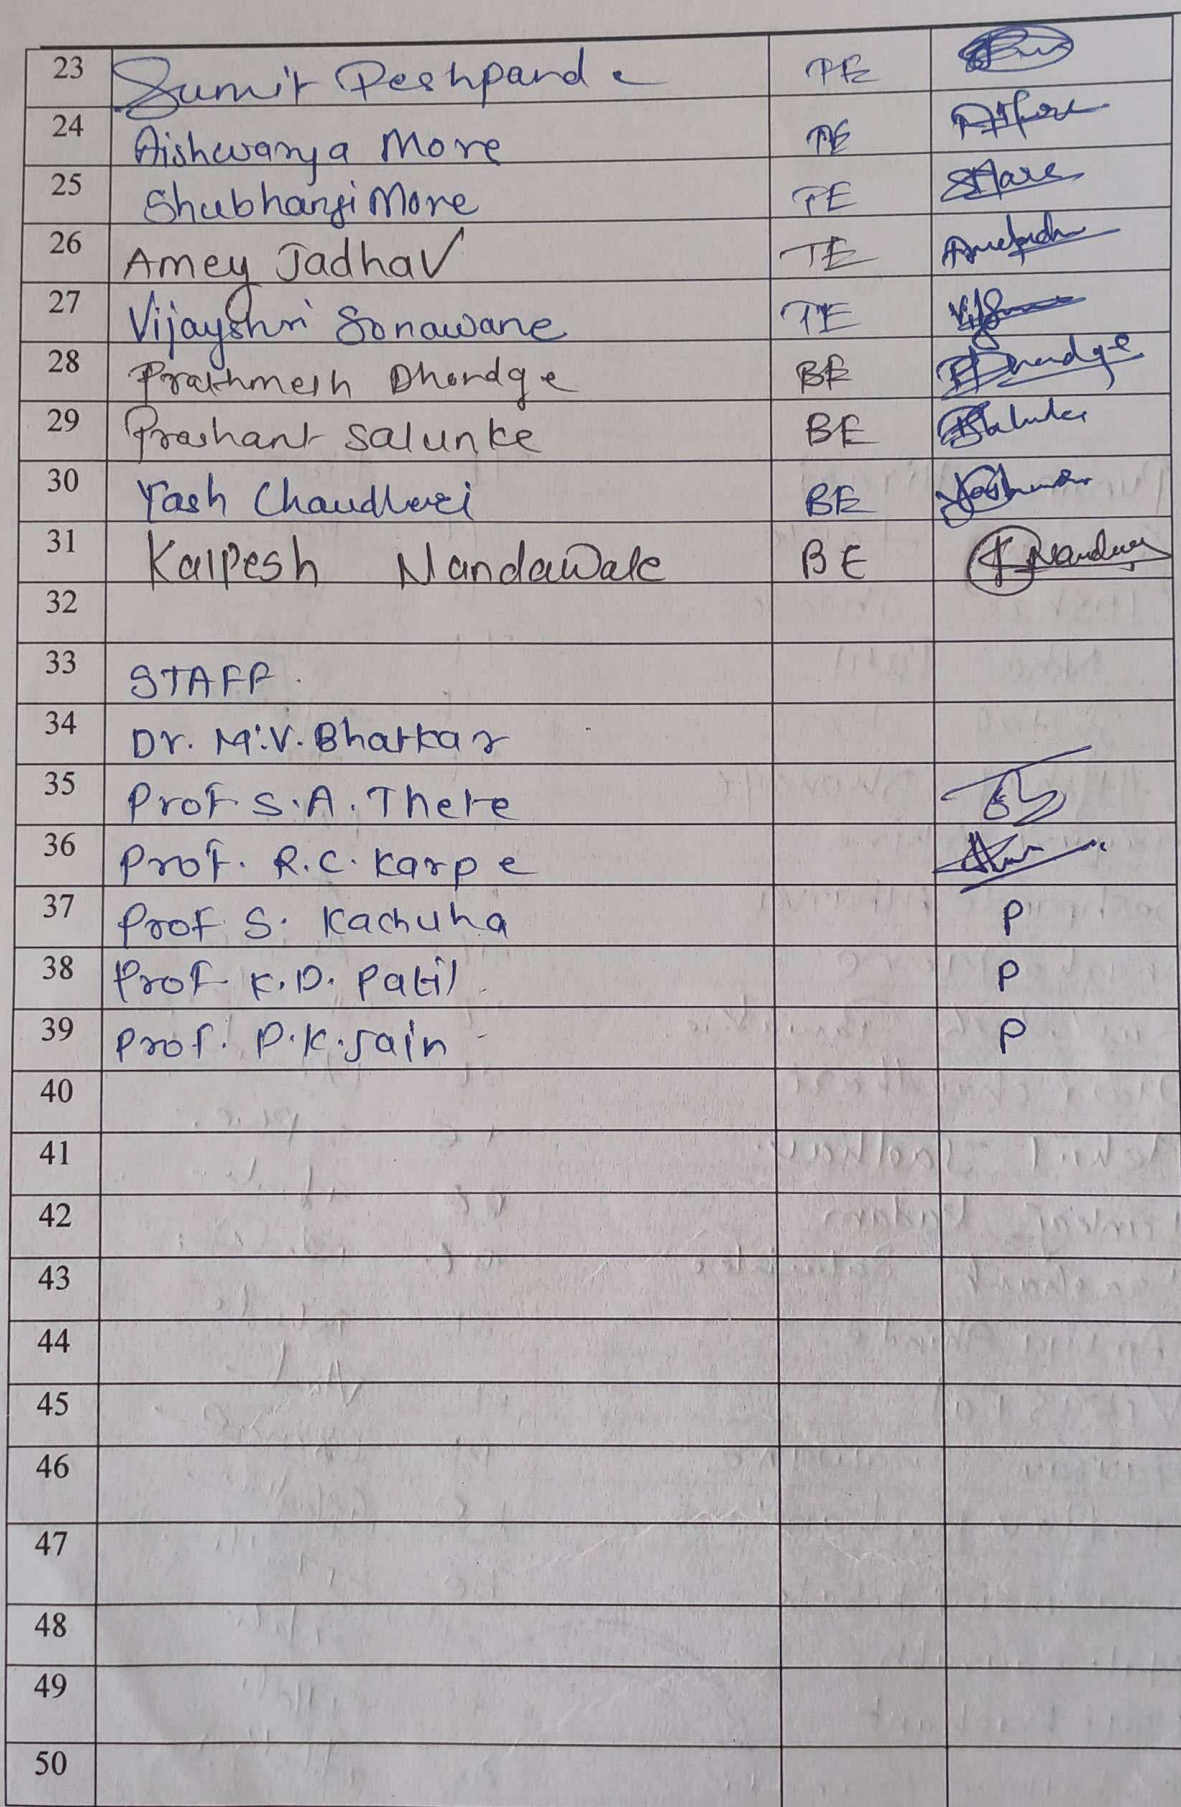 23 Sumit Deshpande TE
24 Aishwarya More TE
25 Shubhangi More TE
26 Amey Jadhav TE
27 Vijayshri Sonawane TE
28 Prathmesh Dhondge BE
29 Prashant Salunke BE
30 Yash Chaudhari BE
31 Kalpesh Nandawale BE
32
33 STAFF.
34 Dr. M.V. Bhatkar
35 Prof S.A. Thete
36 Prof. R.C. Karpe
37 Prof S. Kachuha P
38 Prof K.D. Patil P
39 Prof. P.K. Jain P
40
41
42
43
44
45
46
47
48
49
50